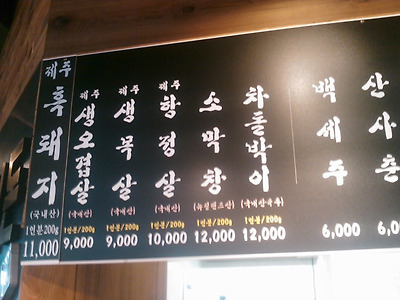 제주
흑돼지
(국내산)
1인분200g
11,000
제주
생오겹살
(국내산)
1인분/200g
9,000
제주
생목살
(국내산)
1인분/200g
9,000
제주
항정살
(국내산)
1인분/200g
10,000
소막창
(뉴질랜드산)
1인분/200g
12,000
차돌박이
(국내산육우)
1인분/200g
12,000
백세주
6,000
산사춘